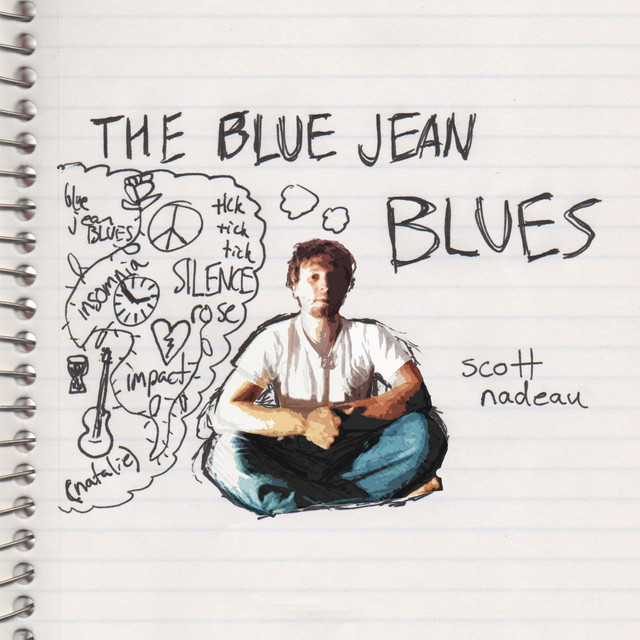 THE BLUE JEAN
BLUES
blue
jean
BLUES
tick
tick
tick
insomnia
SILENCE
rose
impact
(natalie)
scott
nadeau